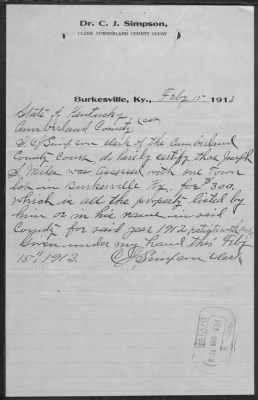 Dr. C. J. Simpson,
CLERK CUMBERLAND COUNTY COURT
Burkesville, Ky., Feby 15 1913
State of Kentucky
Cumberland County Sct
I C J Simpson clerk of the Cumberland
County Court do hereby certify that Joseph
S. Miller was assessed with one Town
lot in Burkesville Ky. for $300,
which is all the property listed by
him or in his name in said
County for said year 1912
Given under my hand this Feby
15th 1913. C J Simpson Clerk